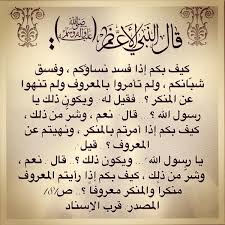 قال النبي الأعظم (صلى الله عليه وآله وسلم):
كيف بكم إذا فسد نساؤكم ، وفسق
شبانكم ، ولم تأمروا بالمعروف ولم تنهوا
عن المنكر ؟ فقيل له : ويكون ذلك يا
رسول الله ؟.. قال : نعم ، وشرّ من ذلك ،
كيف بكم إذا أمرتم بالمنكر ، ونهيتم عن
المعروف ؟.. قيل :
يا رسول الله !.. ويكون ذلك ؟.. قال : نعم ،
وشرّ من ذلك ، كيف بكم إذا رأيتم المعروف
منكراً والمنكر معروفاً ؟.. ص١٨١
المصدر: قرب الإسناد